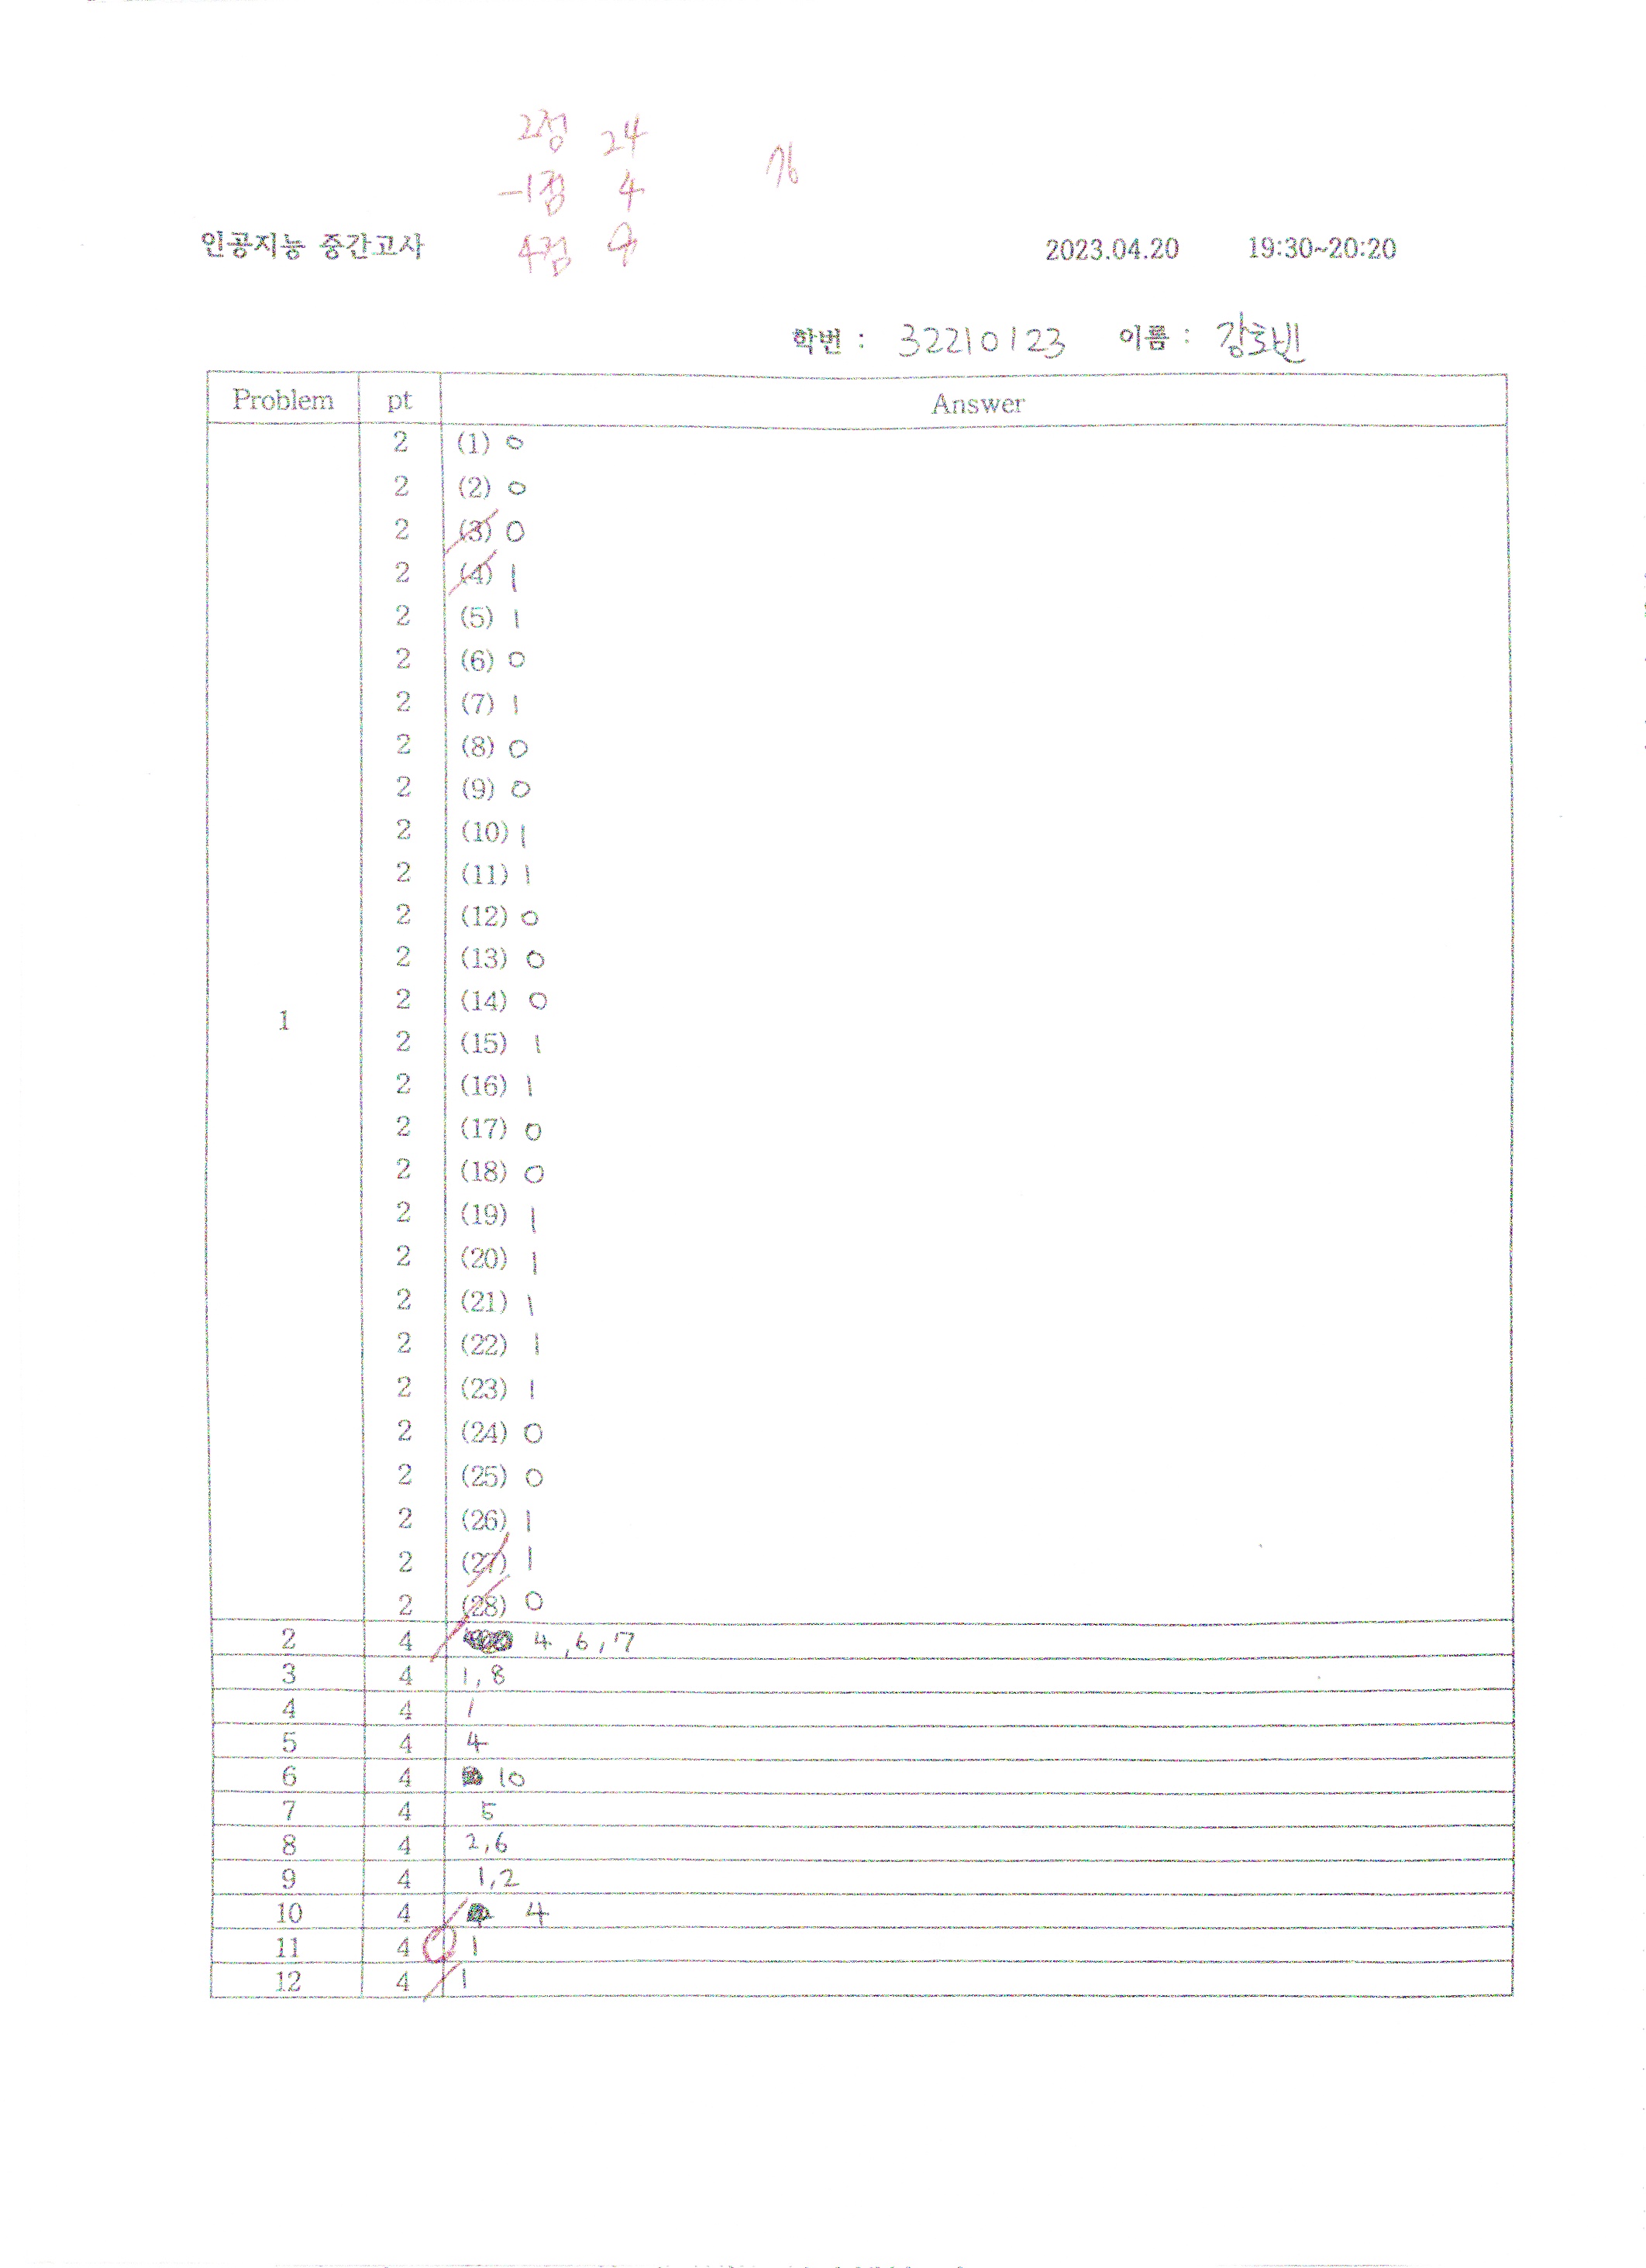 2점 24
-1점 4
76
4점
인공지능 중간고사 2023.04.20 19:30~20:20
학번 : 32210123 이름 : 강호빈
Problem pt Answer
1
2 (1) 0
2 (2) 0
2 (3) 0
2 (4) 1
2 (5) 1
2 (6) 0
2 (7) 1
2 (8) 0
2 (9) 0
2 (10) 1
2 (11) 1
2 (12) 0
2 (13) 0
2 (14) 0
2 (15) 1
2 (16) 1
2 (17) 0
2 (18) 0
2 (19) 1
2 (20) 1
2 (21) 1
2 (22) 1
2 (23) 1
2 (24) 0
2 (25) 0
2 (26) 1
2 (27) 1
2 (28) 0
2 4 4,6,7
3 4 1,8
4 4 1
5 4 4
6 4 10
7 4 5
8 4 2,6
9 4 1,2
10 4 4
11 4 1
12 4 1